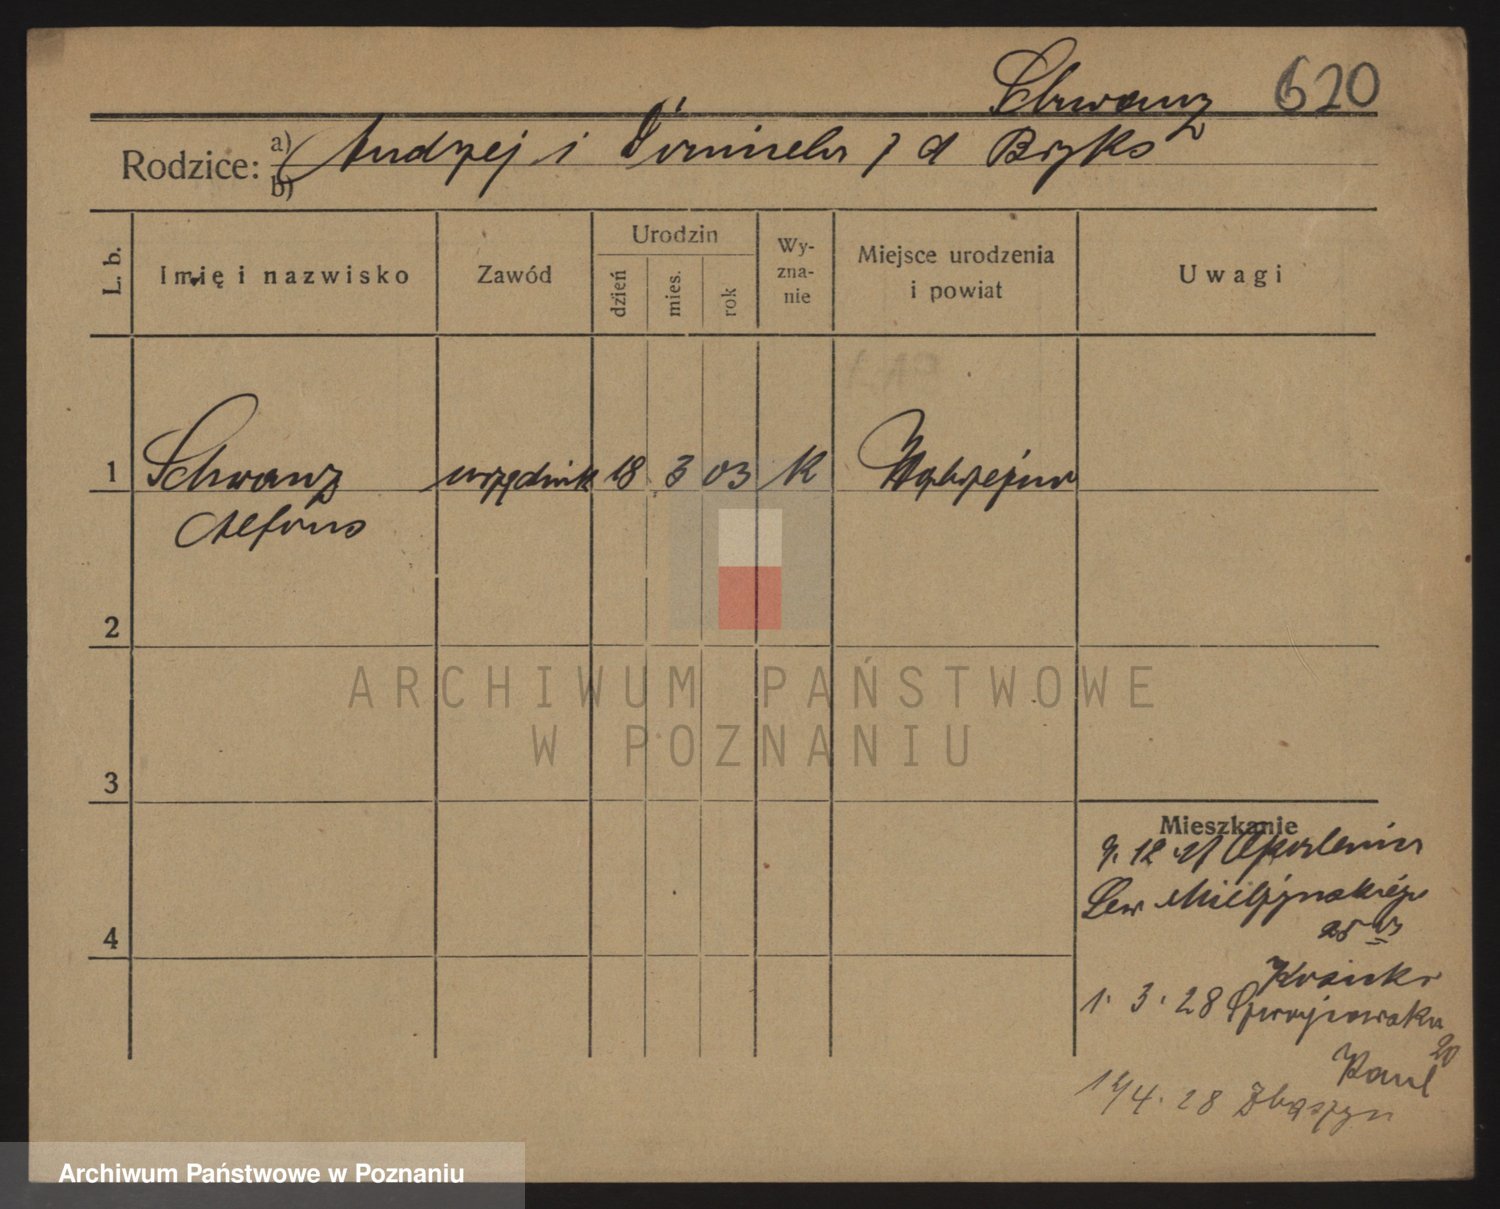 Schwanz 620
Rodzice: a) (Andrzej i Dominika) d Bryks
b)
L. b. Imię i nazwisko Zawód Urodzin dzień mies. rok Wyznanie Miejsce urodzenia i powiat Uwagi
1 Schwanz urzędnik 18 3 03 K
Alfons
2
3
4
Mieszkanie
9. 12 Apolonia
Sew Mielżyńskiego
1. 3. 28
20
Paul
4. 28 Zbąszyń
ARCHIWUM PAŃSTWOWE
W POZNANIU
Archiwum Państwowe w Poznaniu